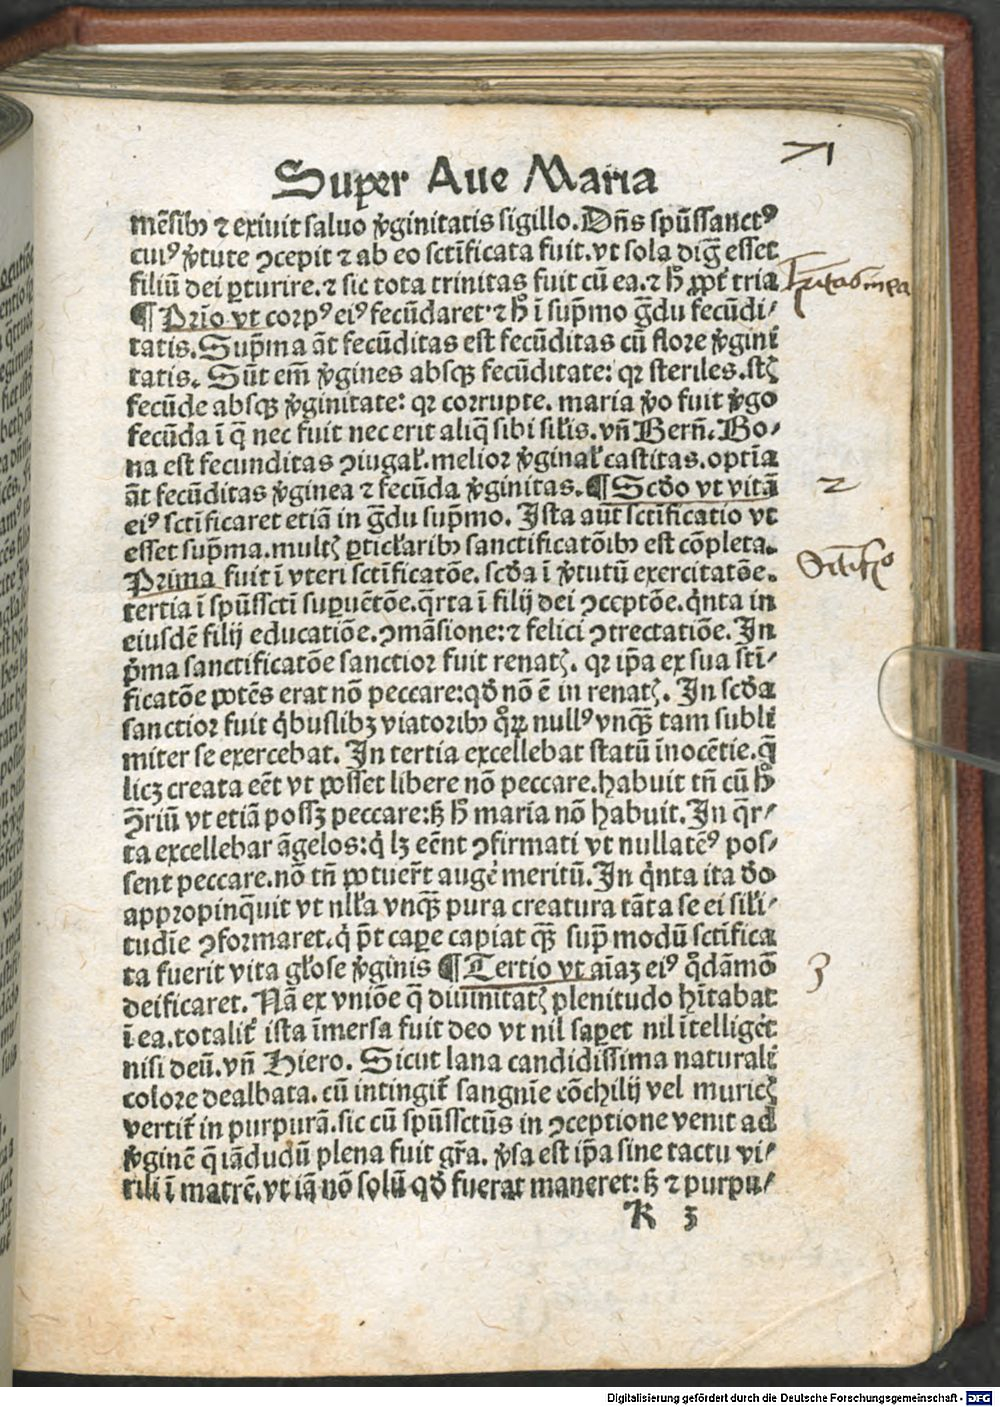 Super Aue Maria
mẽsibꝫ ⁊ exiuit saluo v̾ginitatis sigillo. Dñs spũssanctꝰ
cuiꝰ v̾tute ꝯcepit ⁊ ab eo sctĩficata fuit. vt sola dig̃ esset
filiũ dei ꝑturire. ⁊ sic tota trinitas fuit cũ ea. ⁊ h̄ ꝓpt̃ tria
¶ Prĩo vt corpꝰ eiꝰ fecũdaret. ⁊ h̄ ĩ sup̃mo g̃du fecũdi/
tatis. Sup̃ma ãt fecũditas est fecũditas cũ flore v̾gini
tatis. Sũt em̃ v̾gines absqꝫ fecũditate: qꝛ steriles. stꝭ
fecũde absqꝫ v̾ginitate: qꝛ corrupte. maria v̾o fuit v̾go
fecũda ĩ q̃ nec fuit nec erit aliq̃ sibi sil̃is. vñ Berñ. Bo/
na est fecunditas ꝯiugal̃. melior v̾ginal̃ castitas. optĩa
ãt fecũditas v̾ginea ⁊ fecũda v̾ginitas. ¶ Scd̃o vt vitã
eiꝰ sctĩficaret etiã in g̃du sup̃mo. Ista aũt sctĩficatio vt
esset sup̃ma. multꝭ ꝑticl̃aribꝫ sanctificatõibꝫ est cõpleta.
Prima fuit ĩ vteri sctĩficatõe. scd̃a ĩ v̾tutũ exercitatõe.
tertia ĩ spũssctĩ suꝑuẽtõe. q̃rta ĩ filij dei ꝯceptõe. q̇nta in
eiusdẽ filij educatiõe. ꝯmãsione: ⁊ felici ꝯtrectatiõe. In
p̃ma sanctificatõe sanctior fuit renatꝭ. qꝛ ip̃a ex sua sctĩ/
ficatõe potẽs erat nõ peccare: qd̃ nõ ẽ in renatꝭ. In scd̃a
sanctior fuit q̇buslibꝫ viatoribꝫ qꝛ̊ nullꝰ vnqꝫ̃ tam subli
miter se exercebat. In tertia excellebat statũ ĩnocẽtie. q̃
licꝫ creata eẽt vt posset libere nõ peccare. habuit tñ cũ h̊
ꝯ̃riũ vt etiã possꝫ peccare: sꝫ h̄ maria nõ habuit. In q̃r/
ta excellebat ãgelos: q̇ lꝫ eẽnt ꝯfirmati vt nullatẽꝰ pos/
sent peccare. nõ tñ potuer̃t augẽ meritũ. In q̇nta ita d̃o
appropinq̃uit vt nll̃a vnqꝫ̃ pura creatura tãta se ei sil̃i/
tudĩe ꝯformaret. q̇ p̃t caꝑe capiat qꝫ̃ sup̃ modũ sctĩfica
ta fuerit vita gl̃ose v̾ginis ¶ Tertio vt aĩaꝫ eiꝰ q̊dãmõ
deificaret. Nã ex vniõe q̃ diuinitatꝭ plenitudo hĩtabat
ĩ ea. totalit̃ ista ĩmersa fuit deo vt nil saꝑet nil ĩtelligẽt
nisi deũ. vñ Hiero. Sicut lana candidissima naturali
colore dealbata. cũ intingit̃ sangnĩe cõchilij vel muricꝭ
vertit̃ in purpurã. sic cũ spũssctũs in ꝯceptione venit ad
v̾ginẽ q̃ iãdudũ plena fuit gr̃a. v̾sa est ip̃a sine tactu vi/
rili ĩ matrẽ. vt iã nõ solũ qd̃ fuerat maneret: sꝫ ⁊ purpu/
K 3
1
2
3
Digitalisierung gefördert durch die Deutsche Forschungsgemeinschaft - DFG